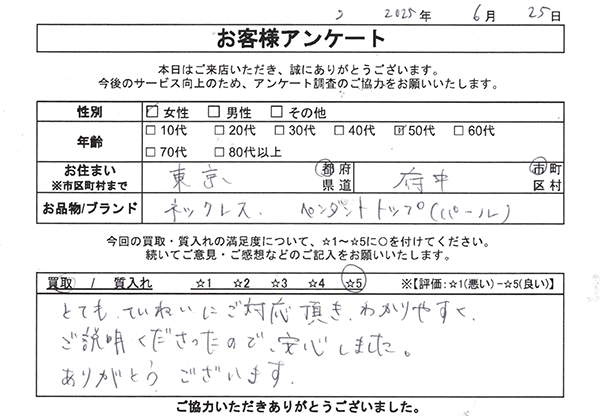 2025年 6月 25日
お客様アンケート
本日はご来店いただき、誠にありがとうございます。
今後のサービス向上のため、アンケート調査のご協力をお願いいたします。
性別 ☑女性 □男性 □その他
年齢 □10代 □20代 □30代 □40代 ☑50代 □60代
□70代 □80代以上
お住まい ※市区町村まで 東京 都府県道 府中 市町区村
お品物/ブランド ネックレス. ペンダントトップ(パール)
今回の買取・質入れの満足度について、☆1～☆5に○を付けてください。
続いてご意見・ご感想などのご記入をお願いいたします。
買取 / 質入れ ☆1 ☆2 ☆3 ☆4 ☆5 ※【評価:☆1(悪い)−☆5(良い)】
とても、ていねいにご対応頂き、わかりやすく、
ご説明くださったので、安心しました。
ありがとうございます.
ご協力いただきありがとうございました。